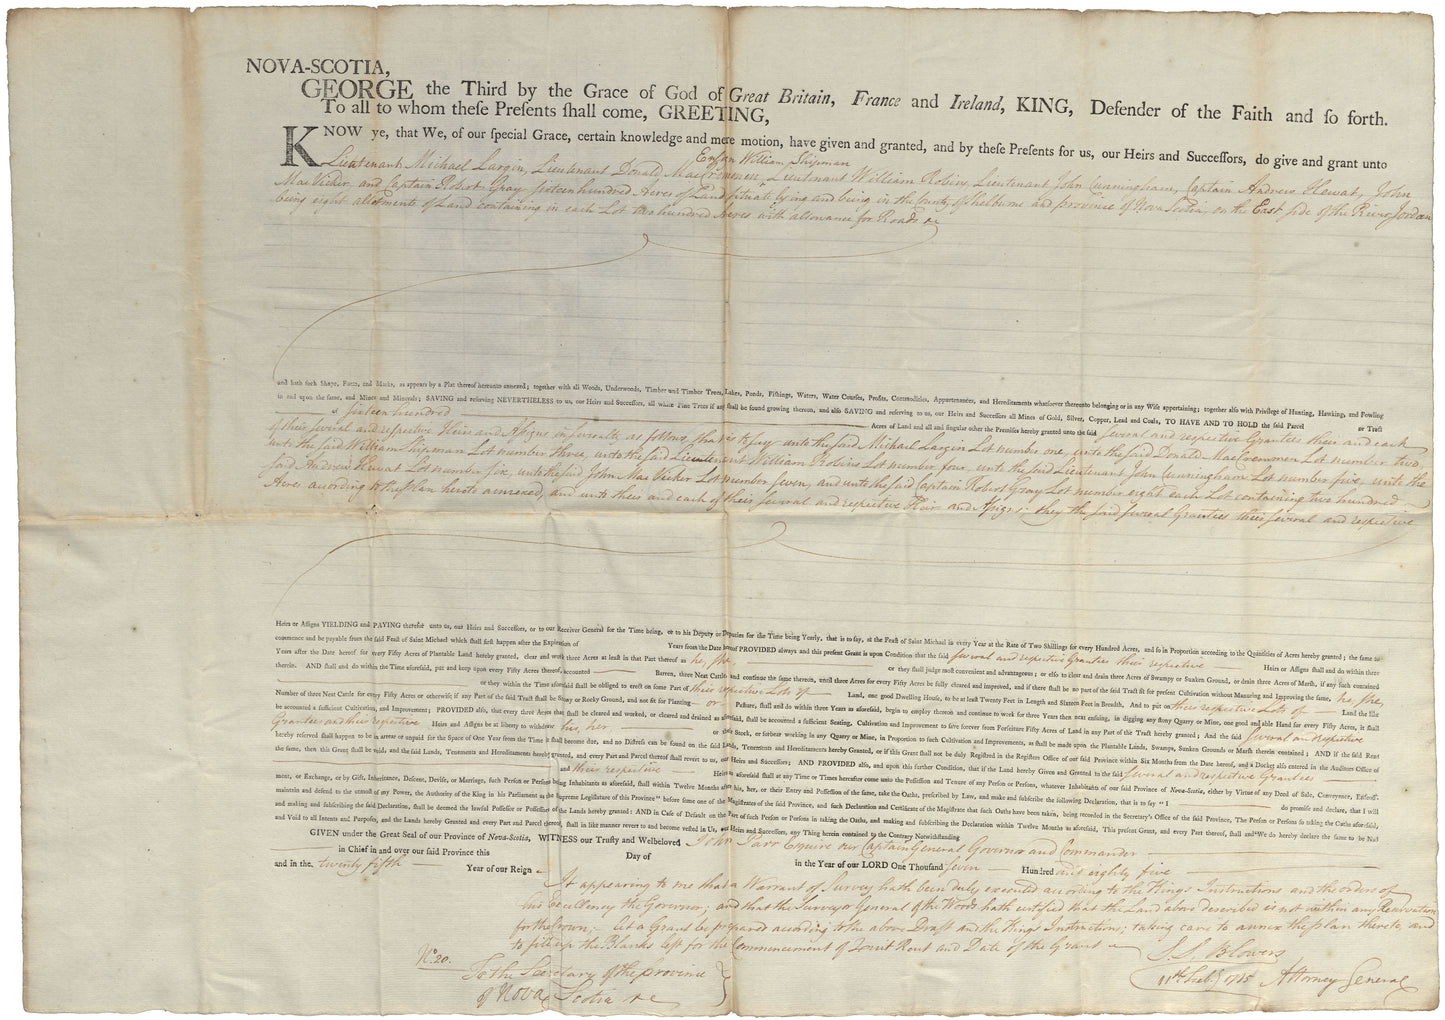 NOVA-SCOTIA,
GEORGE the Third by the Grace of God of Great Britain, France and Ireland, KING, Defender of the Faith and so forth.
To all to whom these Presents shall come, GREETING,
KNOW ye, that We, of our special Grace, certain knowledge and mere motion, have given and granted, and by these Presents for us, our Heirs and Successors, do give and grant unto
Ensign William Shipman
Lieutenant Michael Largin, Lieutenant Donald MacCremmen, Lieutenant William Robins, Lieutenant John Cunningham, Captain Andrew Hewat, John
MacVicker, and Captain Robert Gray sixteen hundred Acres of Land situate lying and being in the County of Shelburne and province of Nova Scotia, on the East side of the River Jordan
being eight allotments of Land containing in each Lot two hundred Acres with allowance for Roads &c
and hath such Shape, Form, and Marks, as appears by a Plat thereof hereunto annexed; together with all Woods, Underwoods, Timber and Timber Trees, Lakes, Ponds, Fishings, Waters, Water Courses, Profits, Commodities, Appurtenances, and Hereditaments whatsoever thereunto belonging or in any Wise appertaining; together also with Privilege of Hunting, Hawking, and Fowling
in and upon the same, and Mines and Minerals; SAVING and reserving NEVERTHELESS to us, our Heirs and Successors, all white Pine Trees if any shall be found growing thereon, and also SAVING and reserving to us, our Heirs and Successors all Mines of Gold, Silver, Copper, Lead and Coals, TO HAVE AND TO HOLD the said Parcel or Tract
of sixteen hundred Acres of Land and all and singular other the Premises hereby granted unto the said several and respective Grantees their and each
of their several and respective Heirs and Assigns in severalty as follows that is to say unto the said Michael Largin Lot number one, unto the said Donald MacCremmen Lot number two,
unto the said William Shipman Lot number three, unto the said Lieutenant William Robins Lot number four, unto the said Lieutenant John Cunningham Lot number five, unto the
said Andrew Hewat Lot number six, unto the said John MacVicker Lot number seven, and unto the said Captain Robert Gray Lot number eight each Lot containing two hundred
Acres according to the plan hereto annexed, and unto their and each of their several and respective Heirs and Assigns: they the said several Grantees their several and respective
Heirs or Assigns YIELDING and PAYING therefor unto us, our Heirs and Successors, or to our Receiver General for the Time being, or to his Deputy or Deputies for the Time being Yearly, that is to say, at the Feast of Saint Michael in every Year at the Rate of Two Shillings for every Hundred Acres, and so in proportion according to the Quantities of Acres hereby granted; the same to
commence and be payable from the said Feast of Saint Michael which shall first happen after the Expiration of Years from the Date hereof PROVIDED always and this present Grant is upon Condition that the said several and respective Grantees their respective Heirs or Assigns shall and do within three
Years after the Date hereof for every Fifty Acres of Plantable Land hereby granted, clear and work three Acres at least in that Part thereof as he, she, or they shall judge most convenient and advantageous; or else to clear and drain three Acres of Swampy or Sunken Ground, or drain three Acres of Marsh, if any such contained
therein. AND shall and do within the Time aforesaid, put and keep upon every Fifty Acres thereof, accounted Barren, three Neat Cattle and continue the same thereon, until three Acres for every Fifty Acres be fully cleared and improved, and if there shall be no part of the said Tract fit for present Cultivation without Manuring and Improving the same, he, she,
or they within the Time aforesaid shall be obliged to erect on some Part of their respective Lots of Land, one good Dwelling House, to be at least Twenty Feet in Length and Sixteen Feet in Breadth, And to put on their respective Lots of Land the like
Number of three Neat Cattle for every Fifty Acres or otherwise; if any Part of the said Tract shall be Stony or Rocky Ground, and not fit for Planting or Pasture, shall and do within three Years as aforesaid, begin to employ thereon and continue to work for three Years then next ensuing, in digging any stony Quarry or Mine, one good and able Hand for every Fifty Acres, it shall
be accounted a sufficient Cultivation, and Improvement; PROVIDED also, that every three Acres that shall be cleared and worked, or cleared and drained as aforesaid, shall be accounted a sufficient Seating, Cultivation and Improvement to save forever from Forfeiture Fifty Acres of Land in any Part of the Tract hereby granted; And the said several and respective
Grantees and their respective Heirs and Assigns be at liberty to withdraw his, her or their Stock, or forbear working in any Quarry or Mine, in Proportion to such Cultivation and Improvements, as shall be made upon the Plantable Lands, Swamps, Sunken Grounds or Marsh therein contained; AND if the said Rent
hereby reserved shall happen to be in arrear or unpaid for the Space of One Year from the Time it shall become due, and no Distress can be found on the said Lands, Tenements and Hereditaments hereby Granted, or if this Grant shall not be duly Registred in the Registers Office of our said Province within Six Months from the Date hereof, and a Docket also entered in the Auditors Office of
the same, then this Grant shall be void, and the said Lands, Tenements and Hereditaments hereby granted, and every Part and Parcel thereof shall revert to us, our Heirs and Successors; AND PROVIDED also, and upon this further Condition, that if the Land hereby Given and Granted to the said several and respective Grantees
and their respective Heirs as aforesaid shall at any Time or Times hereafter come unto the Possession and Tenure of any Person or Persons, whatever Inhabitants of our said Province of Nova-Scotia, either by Virtue of any Deed of Sale, Conveyance, Enfeoff-
ment, or Exchange, or by Gift, Inheritance, Descent, Devise, or Marriage, such Person or Persons being Inhabitants as aforesaid, shall within Twelve Months after his, her, or their Entry and Possession of the same, take the Oaths, prescribed by Law, and make and subscribe the following Declaration, that is to say "I do promise and declare, that I will
maintain and defend to the utmost of my Power, the Authority of the King in his Parliament as the Supreme Legislature of this Province" before some one of the Magistrates of the said Province, and such Declaration and Certificate of the Magistrate that such Oaths have been taken, being recorded in the Secretary's Office of the said Province, The Person or Persons so taking the Oaths aforesaid,
and making and subscribing the said Declaration, shall be deemed the lawful Possessor or Possessors of the Lands hereby granted: AND in Case of Default on the Part of such Person or Persons in taking the Oaths, and making and subscribing the Declaration within Twelve Months as aforesaid, This present Grant, and every Part thereof, shall and We do hereby declare the same to be Null
and Void to all Intents and Purposes, and the Lands hereby Granted and every Part and Parcel thereof, shall in like manner revert to and become vested in Us, our Heirs and Successors, any Thing herein contained to the Contrary Notwithstanding
GIVEN under the Great Seal of our Province of Nova-Scotia, WITNESS our Trusty and Welbeloved John Parr Esquire our Captain General Governor and Commander
in Chief in and over our said Province this Day of in the Year of our LORD One Thousand seven Hundred and eighty five
and in the twenty fifth Year of our Reign
It appearing to me that a Warrant of Survey hath been duly executed according to the Kings Instructions and the orders of
his Excellency the Governor; and that the Surveyor General of the Woods hath certified that the Land above described is not within any Reservation
for the Crown, Let a Grant be prepared according to the above Draft and the Kings Instructions; taking care to annex the plan thereto, and
to fill up the Blanks left for the Commencement of Quit Rent and Date of the Grant
No. 20.
To the Secretary of the province
of Nova Scotia &c
S. S. Blowers
11th Feby 1785 Attorney General